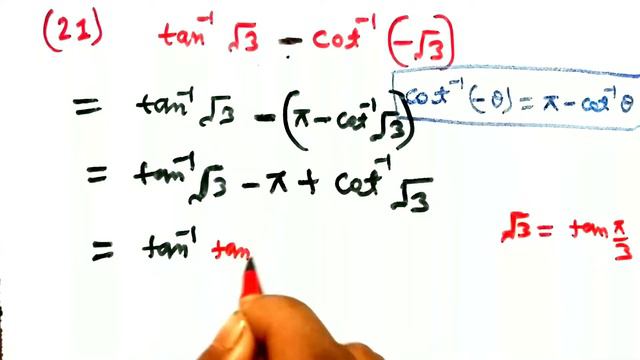 (21) tan⁻¹ √3 - cot⁻¹ (-√3)
= tan⁻¹ √3 - (π - cot⁻¹ √3)
cot⁻¹ (-θ) = π - cot⁻¹ θ
= tan⁻¹ √3 - π + cot⁻¹ √3
= tan⁻¹ tan
√3 = tan π/3